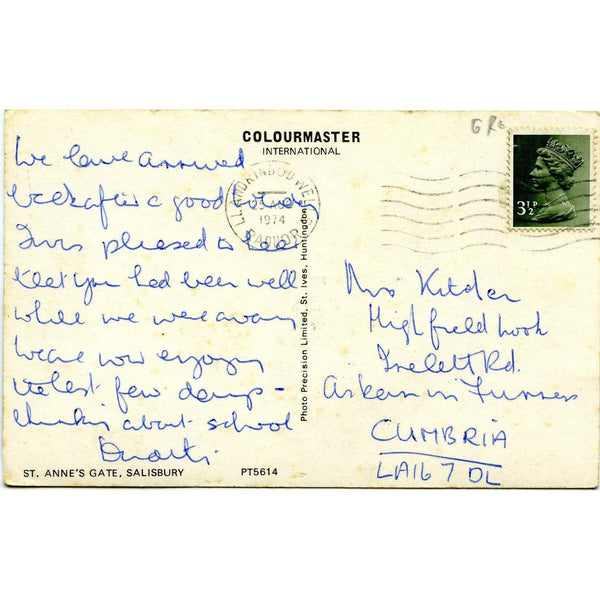 COLOURMASTER
INTERNATIONAL
We have arrived
back after a good holiday
I was pleased to hear
that you had been well
while we were away
We are now enjoying
the last few days -
thinking about school
ST. ANNE'S GATE, SALISBURY
PT5614
Photo Precision Limited, St. Ives, Huntingdon
LLANDRINDOD WELLS
1974
RADNOR
3½P
Mrs
Highfield
Rd.
Askam in Furness
CUMBRIA
LA16 7 DL